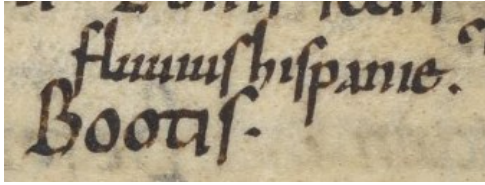 fluuiushispanie.
Bootis.